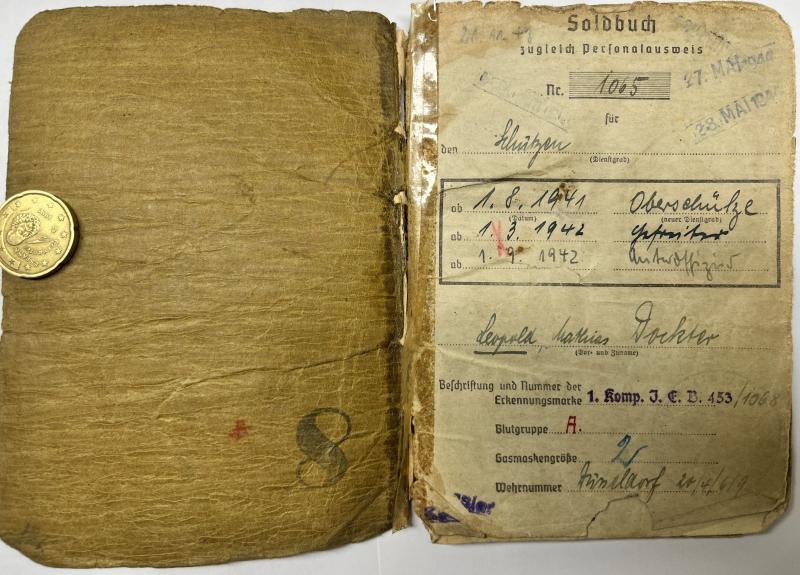 8
Soldbuch
zugleich Personalausweis
Nr. 1065
27. MAI 194
28. MAI 194
für
den Schützen
(Dienstgrad)
ab 1. 8. 1941 Oberschütze
(Datum) (neuer Dienstgrad)
ab 1. 3. 1942 Gefreiter
ab 1. 9. 1942 Unteroffizier
Leopold, Mathias Dockter
(Vor- und Zuname)
Beschriftung und Nummer der
Erkennungsmarke 1. Komp. J. E. B. 453/1068
Blutgruppe A.
Gasmaskengröße 2
Wehrnummer Düsseldorf 20/4/6/9